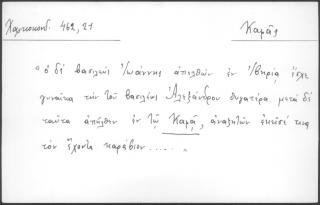 Χαλκοκονδ. 462, 21 Καμᾶς
"ὁ δὲ βασιλεὺς Ἰωάννης ἀπελθὼν ἐν Ἰβηρίᾳ ἔσχε
γυναῖκα τὴν τοῦ βασιλέως Ἀλεξάνδρου θυγατέρα. μετὰ δὲ
ταῦτα ἀπῆλθεν ἐν τῷ Καμᾷ, ἀναζητῶν
τὸν ἔχοντα καράβιον ..... "